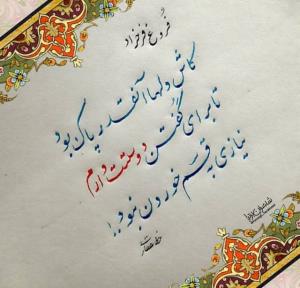 فروغ فرخزاد
کاش دلها آنقدر پاک بود
تا برای گفتن دوستت دارم
نیازی به قسم خوردن نبود..!